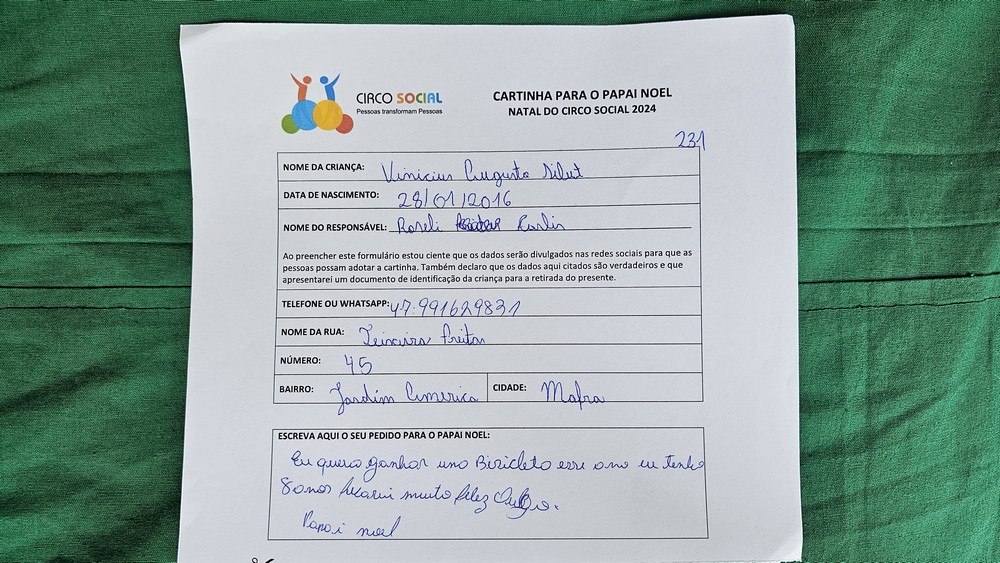 CIRCO SOCIAL
Pessoas transformam Pessoas
CARTINHA PARA O PAPAI NOEL
NATAL DO CIRCO SOCIAL 2024
231
NOME DA CRIANÇA: Vinicius Augusto
DATA DE NASCIMENTO: 28/01/2016
NOME DO RESPONSÁVEL: Roseli
Ao preencher este formulário estou ciente que os dados serão divulgados nas redes sociais para que as
pessoas possam adotar a cartinha. Também declaro que os dados aqui citados são verdadeiros e que
apresentarei um documento de identificação da criança para a retirada do presente.
TELEFONE OU WHATSAPP: 47.991629831
NOME DA RUA: Teixeira Freitas
NÚMERO: 45
BAIRRO: Jardim America CIDADE: Mafra
ESCREVA AQUI O SEU PEDIDO PARA O PAPAI NOEL:
Eu quero ganhar uma Bicicleta esse ano eu tenho
8 anos ficarei muito feliz
Papai noel